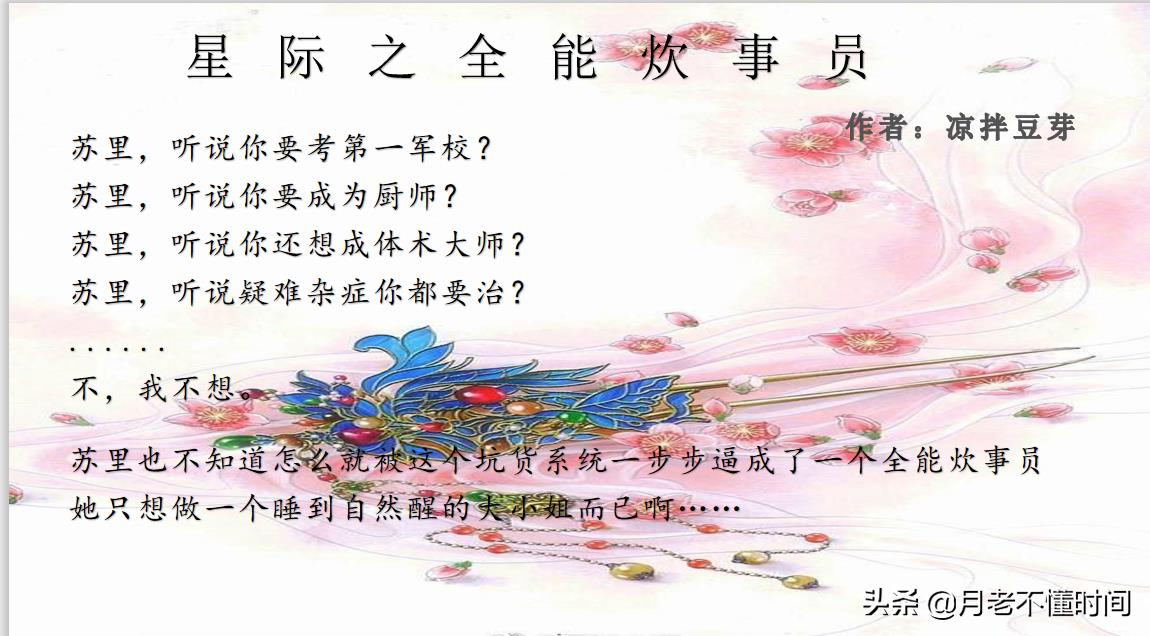 星际之全能炊事员
作者：凉拌豆芽
苏里，听说你要考第一军校？
苏里，听说你要成为厨师？
苏里，听说你还想成体术大师？
苏里，听说疑难杂症你都要治？
......
不，我不想。
苏里也不知道怎么就被这个坑货系统一步步逼成了一个全能炊事员
她只想做一个睡到自然醒的大小姐而已啊……
头条 @月老不懂时间